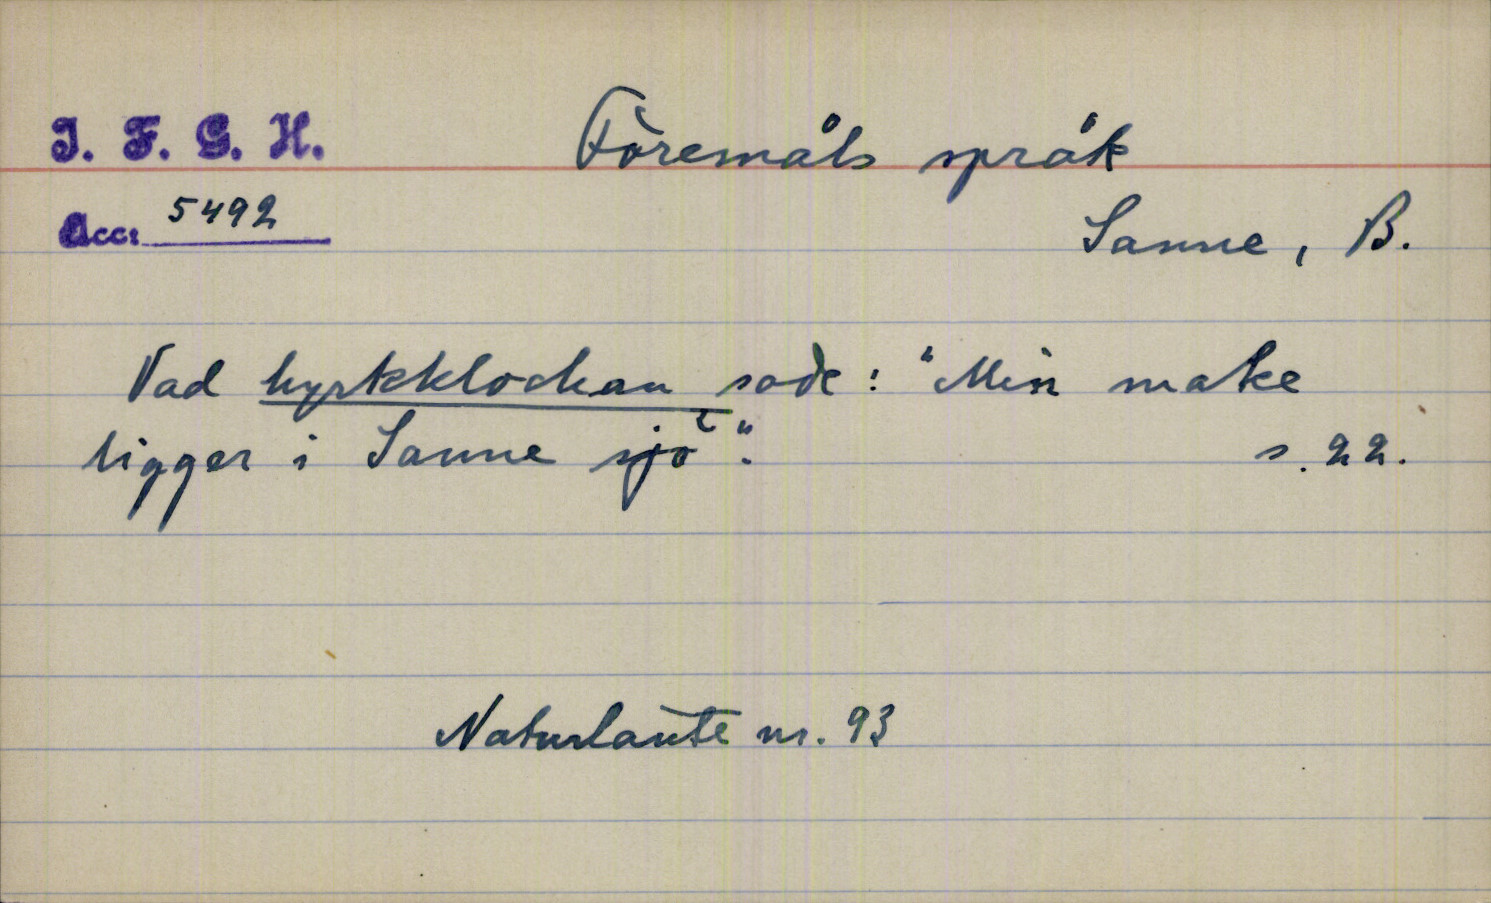 I. F. G. H.
Föremåls språk
Acc: 5492
Sanne, B.
Vad kyrkklockan sade: "Min make
ligger i Sanne sjö".
s. 22.
Naturlaute nr. 93